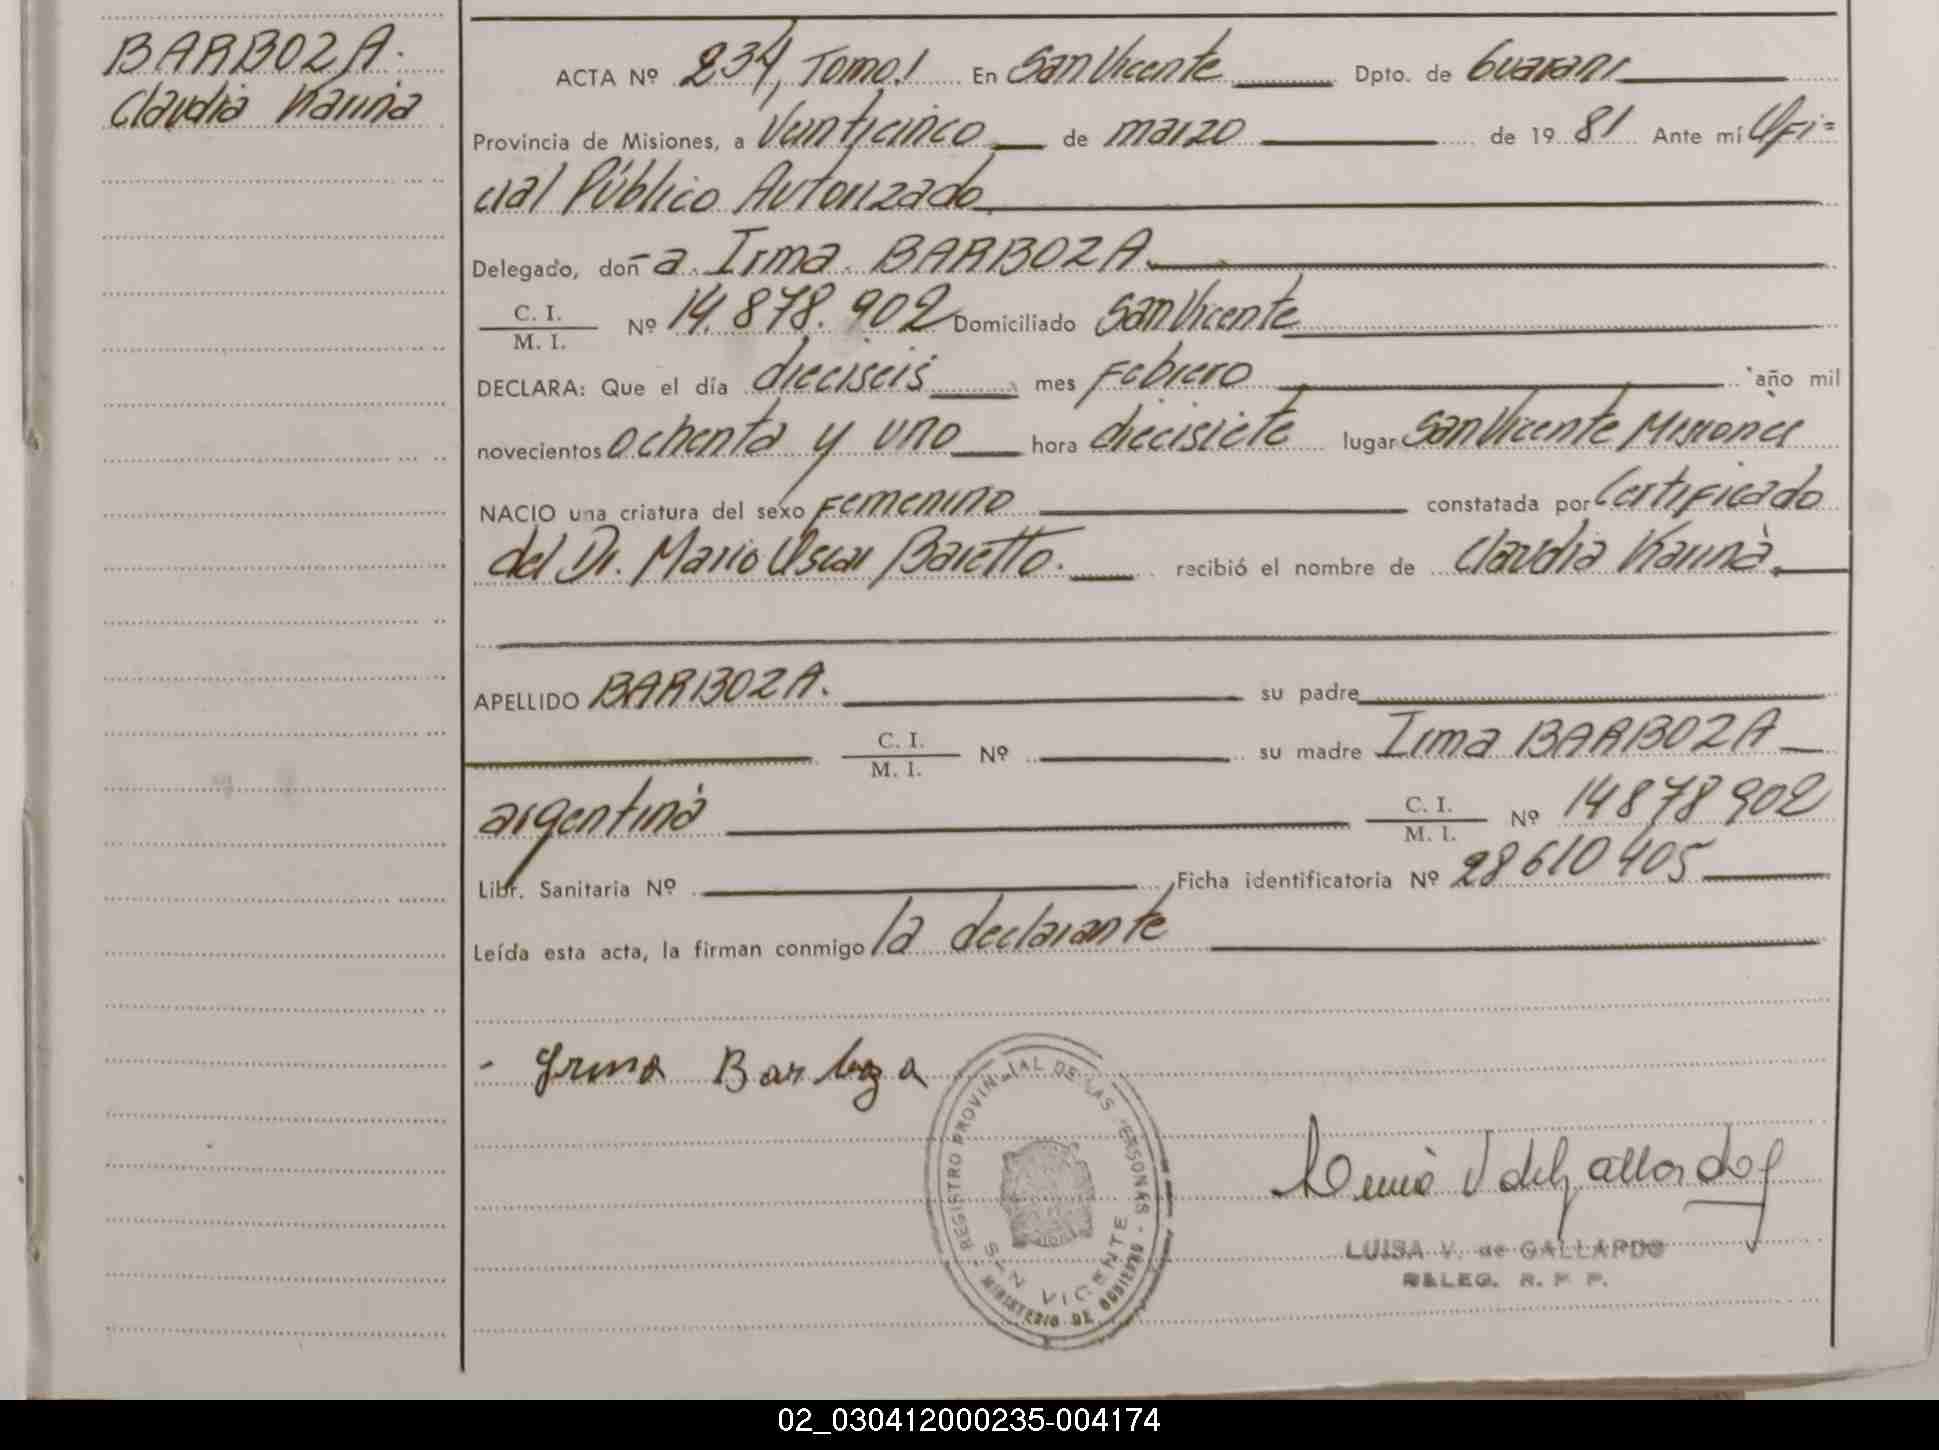 BARBOZA.
Claudia Karina
ACTA Nº 234, Tomo I En San Vicente Dpto. de Guaraní
Provincia de Misiones, a Veinticinco de marzo de 1981 Ante mí Ofi=
cial Público Autorizado
Delegado, doña Irma BARBOZA.
C. I.
M. I.
Nº 14.878.902 Domiciliado San Vicente
DECLARA: Que el día dieciseis mes Febrero año mil
novecientos ochenta y uno hora diecisiete lugar San Vicente Misiones
NACIO una criatura del sexo Femenino constatada por Certificado
del Dr. Mario Oscar Baretto. recibió el nombre de Claudia Karina.
APELLIDO BARBOZA. su padre
C. I.
M. I.
Nº su madre Irma BARBOZA
argentina
C. I.
M. I.
Nº 14878902
Libr. Sanitaria Nº Ficha identificatoria Nº 28610405
Leída esta acta, la firman conmigo la declarante
- Irma Barboza
REGISTRO PROVINCIAL DE LAS PERSONAS -
SAN VICENTE
MINISTERIO DE GOBIERNO
V de Gallardo
LUISA V. de GALLARDO
DELEG. R. P. P.
02_030412000235-004174